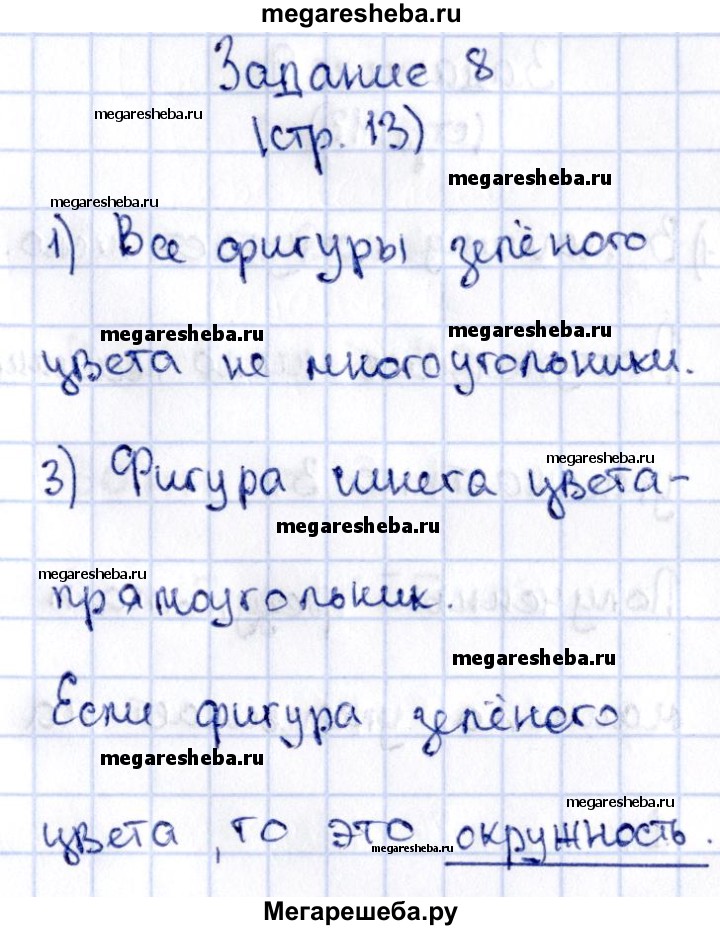 megaresheba.ru
Задание 8
megaresheba.ru
(стр. 13)
megaresheba.ru
megaresheba.ru
1) Все фигуры зелёного
megaresheba.ru
megaresheba.ru
цвета не многоугольники.
megaresheba.ru
3) Фигура синего цвета-
megaresheba.ru
megaresheba.ru
прямоугольник.
megaresheba.ru
Если фигура зелёного
megaresheba.ru
megaresheba.ru
цвета, то это окружность.
megaresheba.ru
Мегарешеба.ру